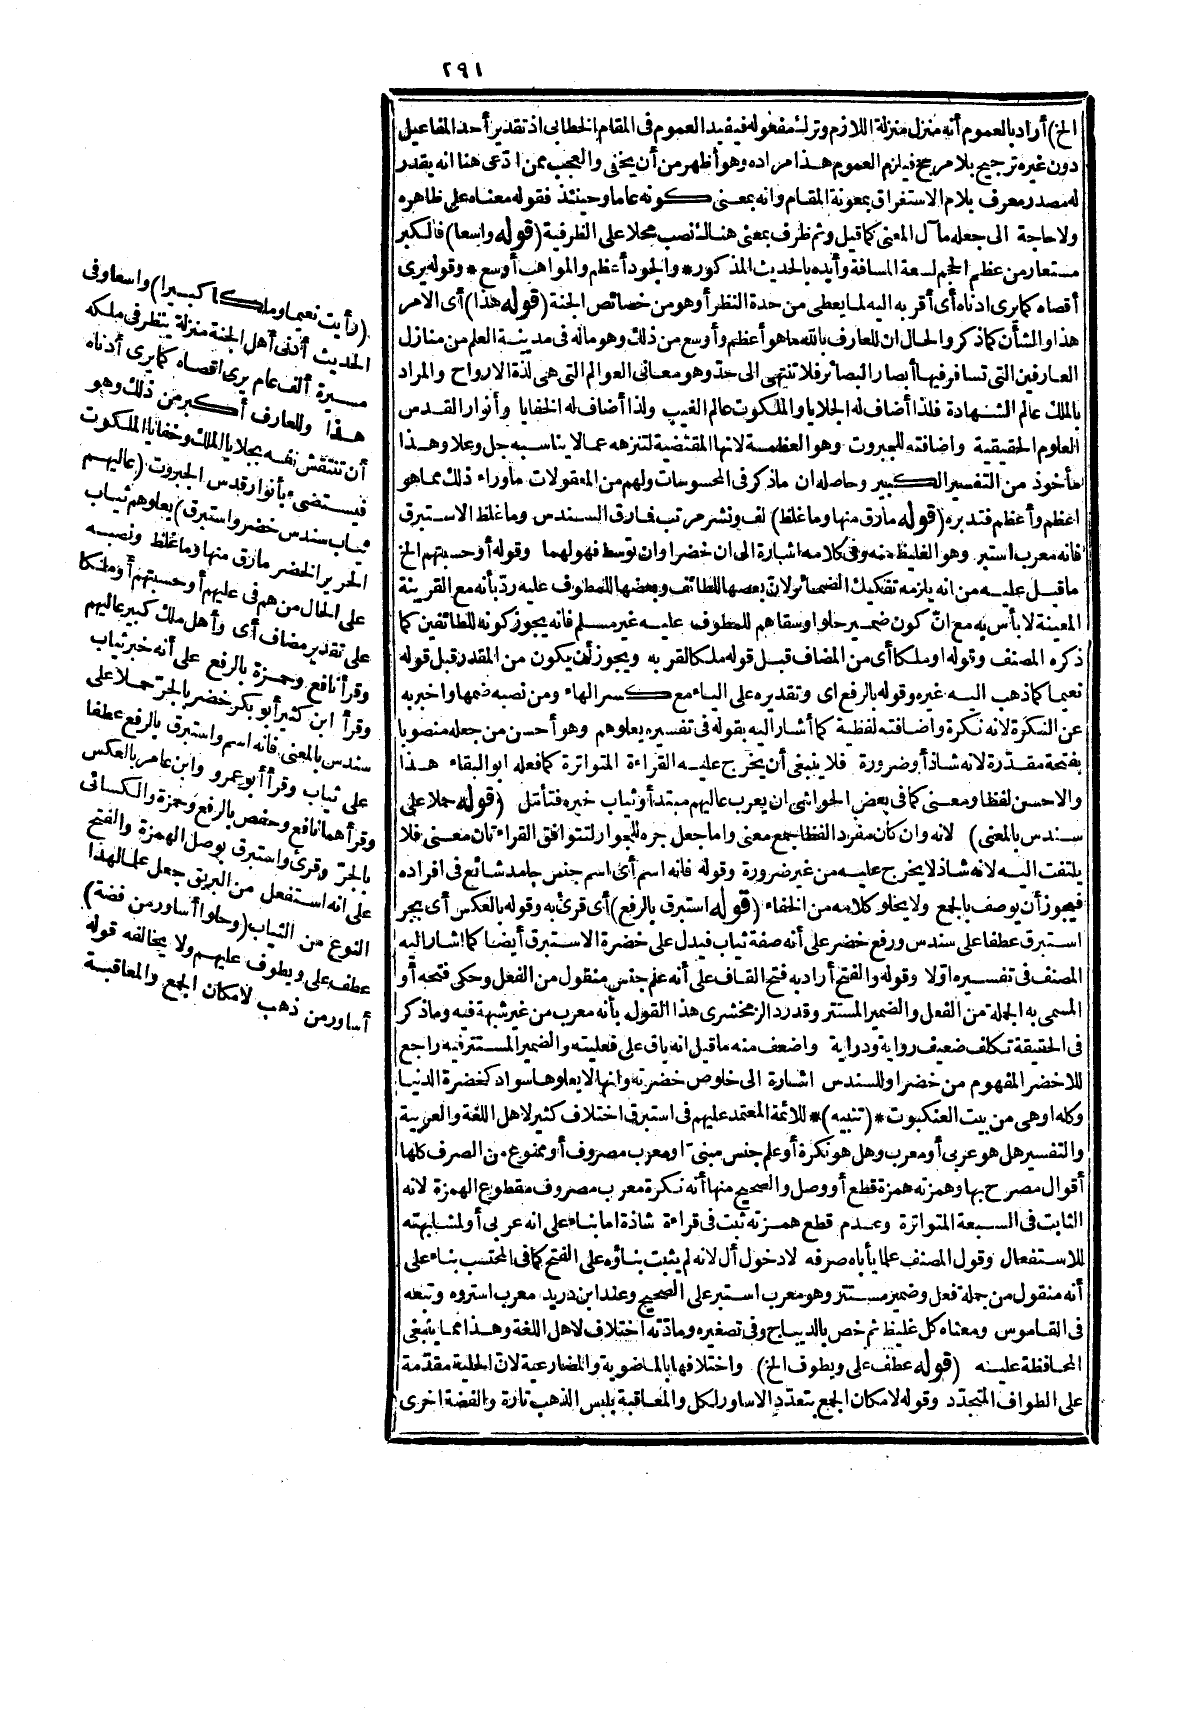 ٢٩١
الخ) أراد بالعموم أنه منزل منزلة اللازم وترك مفعوله فيفيد العموم فى المقام الخطابى اذ تقدير أحد المفاعيل
دون غيره ترجيح بلا مرجح فيلزم العموم هذا مراده وهو أظهر من أن يخفى والعجب ممن ادّعى هنا انه يقدر
له مصدر معرف بلام الاستغراق بمعونة المقام وانه بمعنى كونه عاما وحينئذ فقوله معناه على ظاهره
ولا حاجة الى جعله مآل المعنى كما قيل وثم ظرف بمعنى هنالك نصب محلا على الظرفية (قوله واسعا) فالكبر
مستعار من عظم الحجم لسعة المسافة وأيده بالحديث المذكور * والجود أعظم والمواهب أوسع * وقوله يرى
أقصاه كما يرى ادناه أى أقر به اليه لما يعطى من حدة النظر أو هو من خصائص الجنة (قوله هذا) أى الامر
هذا والشأن كما ذكر والحال ان للعارف بالله ما هو أعظم وأوسع من ذلك وهو ماله فى مدينة العلم من منازل
العارفين التى تسافر فيها أبصار البصائر فلا تنتهى الى حدّ وهو معانى العوالم التى هى لذة الارواح والمراد
بالملك عالم الشهادة فلذا أضاف له الجلايا والملكوت عالم الغيب ولذا أضاف له الخفايا وأنوار القدس
العلوم الحقيقية واضافته للجبروت وهو العظمة لانها المقتضية لتنزهه عما لا يناسبه جل وعلا وهذا
مأخوذ من التفسير الكبير وحاصله ان ماذكر فى المحسوسات ولهم من المعقولات ماوراء ذلك مما هو
اعظم وأعظم فتدبره (قوله مارق منها وما غلظ) لف ونشر مرتب فارق السندس وما غلظ الاستبرق
فانه معرب استبر وهو الغليظ منه وفى كلامه اشارة الى ان خضرا وان توسط فهو لهما وقوله أو حسبتهم الخ
ما قيل عليه من انه يلزمه تفكيك الضمائر لانّ بعضها للطائف وبعضها للمطوف عليه ردّ بأنه مع القرينة
المعينة لا بأس به مع انّ كون ضمير حلوا وسقاهم للمطوف عليه غير مسلم فانه يجوز كونه للطائفين كما
ذكره المصنف وقوله او ملكا أى من المضاف قبل قوله ملكا لقربه ويجوز أن يكون من المقدر قبل قوله
نعيما كما ذهب اليه غيره وقوله بالرفع اى وتقديره على الياء مع كسر الهاء ومن نصبه ضمها واخبر به
عن النكرة لانه نكرة واضافته لفظية كما أشار اليه بقوله فى تفسيره يعلوهم وهو أحسن من جعله منصوبا
بفتحة مقدّرة لانه شاذ أو ضرورة فلا ينبغى أن يخرج عليه القراءة المتواترة كما فعله ابو البقاء هذا
والاحسن لفظا ومعنى كما فى بعض الحواشى ان يعرب عاليهم مبتدأ وثياب خبره فتأمّل (قوله حملا على
سندس بالمعنى) لانه وان كان مفرد الفظا جمع معنى واما جعل جره للجوار لتتوافق القراءتان معنى فلا
يلتفت اليه لانه شاذ لا يخرج عليه من غير ضرورة وقوله فانه اسم أى اسم جنس جامد شائع فى افراده
فيجوز أن يوصف بالجمع ولا يخلو كلامه من الخفاء (قوله استبرق بالرفع) أى قرئ به وقوله بالعكس أى بجر
استبرق عطفا على سندس ورفع خضر على أنه صفة ثياب فيدل على خضرة الاستبرق أيضا كما اشار اليه
المصنف فى تفسيره اوّلا وقوله والفتح أراد به فتح القاف على أنه علم جنس منقول من الفعل وحكى فتحه أو
المسمى به الجملة من الفعل والضمير المستتر وقد رد الزمخشرى هذا القول بأنه معرب من غير شبهة فيه وما ذكر
فى الحقيقة تكلف ضعيف رواية ودراية واضعف منه ما قيل انه باق على فعليته والضمير المستتر فيه راجع
للاخضر المفهوم من خضر او للسندس اشارة الى خلوص خضرته وانها لا يعلوها سواد كخضرة الدنيا
وكله اوهى من بيت العنكبوت * (تنبيه) * للائمة المعتمد عليهم فى استبرق اختلاف كثير لاهل اللغة والعربية
والتفسير هل هو عربى أو معرب وهل هو نكرة أو علم جنس مبنىّ او معرب مصروف أو ممنوع من الصرف كلها
أقوال مصرح بها وهمزته همزة قطع أو وصل والصحيح منها أنه نكرة معرب مصروف مقطوع الهمزة لانه
الثابت فى السبعة المتواترة وعدم قطع همزته ثبت فى قراءة شاذة اما بناء على انه عربى أو لمشابهته
للاستفعال وقول المصنف علما يأباه صرفه لا دخول أل لانه لم يثبت بناؤه على الفتح كما فى المحتسب بناء على
أنه منقول من جملة فعل وضمير مستتر وهو معرب استبر على الصحيح وعند ابن دريد معرب استروه وتبعه
فى القاموس ومعناه كل غليظ ثم خص بالديباج وفى تصغيره ومادّته اختلاف لاهل اللغة وهذا مما ينبغى
المحافظة عليه (قوله عطف على ويطوف الخ) واختلافها بالماضوية والمضارعية لانّ الحلية مقدّمة
على الطواف المتجدّد وقوله لامكان الجمع بتعدّد الاساور لكل والمعاقبة بلبس الذهب تارة والفضة اخرى
(رأيت نعيما وملكا كبيرا) واسعا وفى
الحديث أدنى أهل الجنة منزلة ينظر فى ملكه
مسيرة ألف عام يرى اقصاه كما يرى أدناه
هذا وللعارف أكبر من ذلك وهو
أن تنتقش نفسه بجلايا الملك وخفايا الملكوت
فيستضىء بأنوار قدس الجبروت (عاليهم
ثياب سندس خضر واستبرق) يعلوهم ثياب
الحرير الخضر مارق منها وما غلظ ونصبه
على الحال من هم فى عليهم أو حسبتهم أو ملكا
على تقدير مضاف أى وأهل ملك كبير عاليهم
وقرأ نافع وحمزة بالرفع على أنه خبر ثياب
وقرأ ابن كثير أبو بكر خضر بالجرّ حملا على
سندس بالمعنى فانه اسم واستبرق بالرفع عطفا
على ثياب وقرأ أبو عمرو وابن عامر بالعكس
وقرأهما نافع وحفص بالرفع وحمزة والكسائى
بالجرّ وقرئ واستبرق بوصل الهمزة والفتح
على انه استفعل من البريق جعل علما لهذا
النوع من الثياب (وحلوا أساور من فضة)
عطف على ويطوف عليهم ولا يخالفه قوله
أساور من ذهب لامكان الجمع والمعاقبة